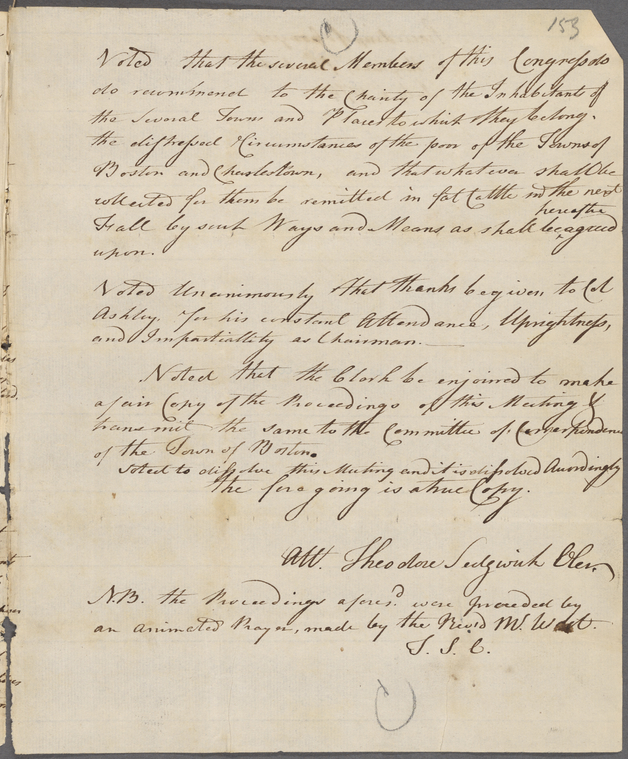 153
Voted that the several Members of this Congress do
do recommend to the Charity of the Inhabitants of
the Several Towns and Places to which they belong.
the distressed Circumstances of the poor of the Towns of
Boston and Charlestown, and that whatever shall be
collected for them be remitted in fat Cattle in the next
hereafter
Fall by such Ways and Means as shall be ‸ agreed
upon.
Voted Unanimously that thanks be given to Col
Ashley, for his constant Attendance, Uprightness,
and Impartiallity as Chairman.
Voted that the Clerk be enjoined to make
a fair Copy of the Proceedings of this Meeting &
transmit the same to the Committee of Correspondence
of the Town of Boston.
Voted to dissolve this Meeting and it is dissolved Accordingly
the fore going is a true Copy.
Att. Theodore Sedgwick Cler.
N.B. the Proceedings afores.d were preceded by
an animated Prayer, made by the Revd Mr. West.
T. S. C.